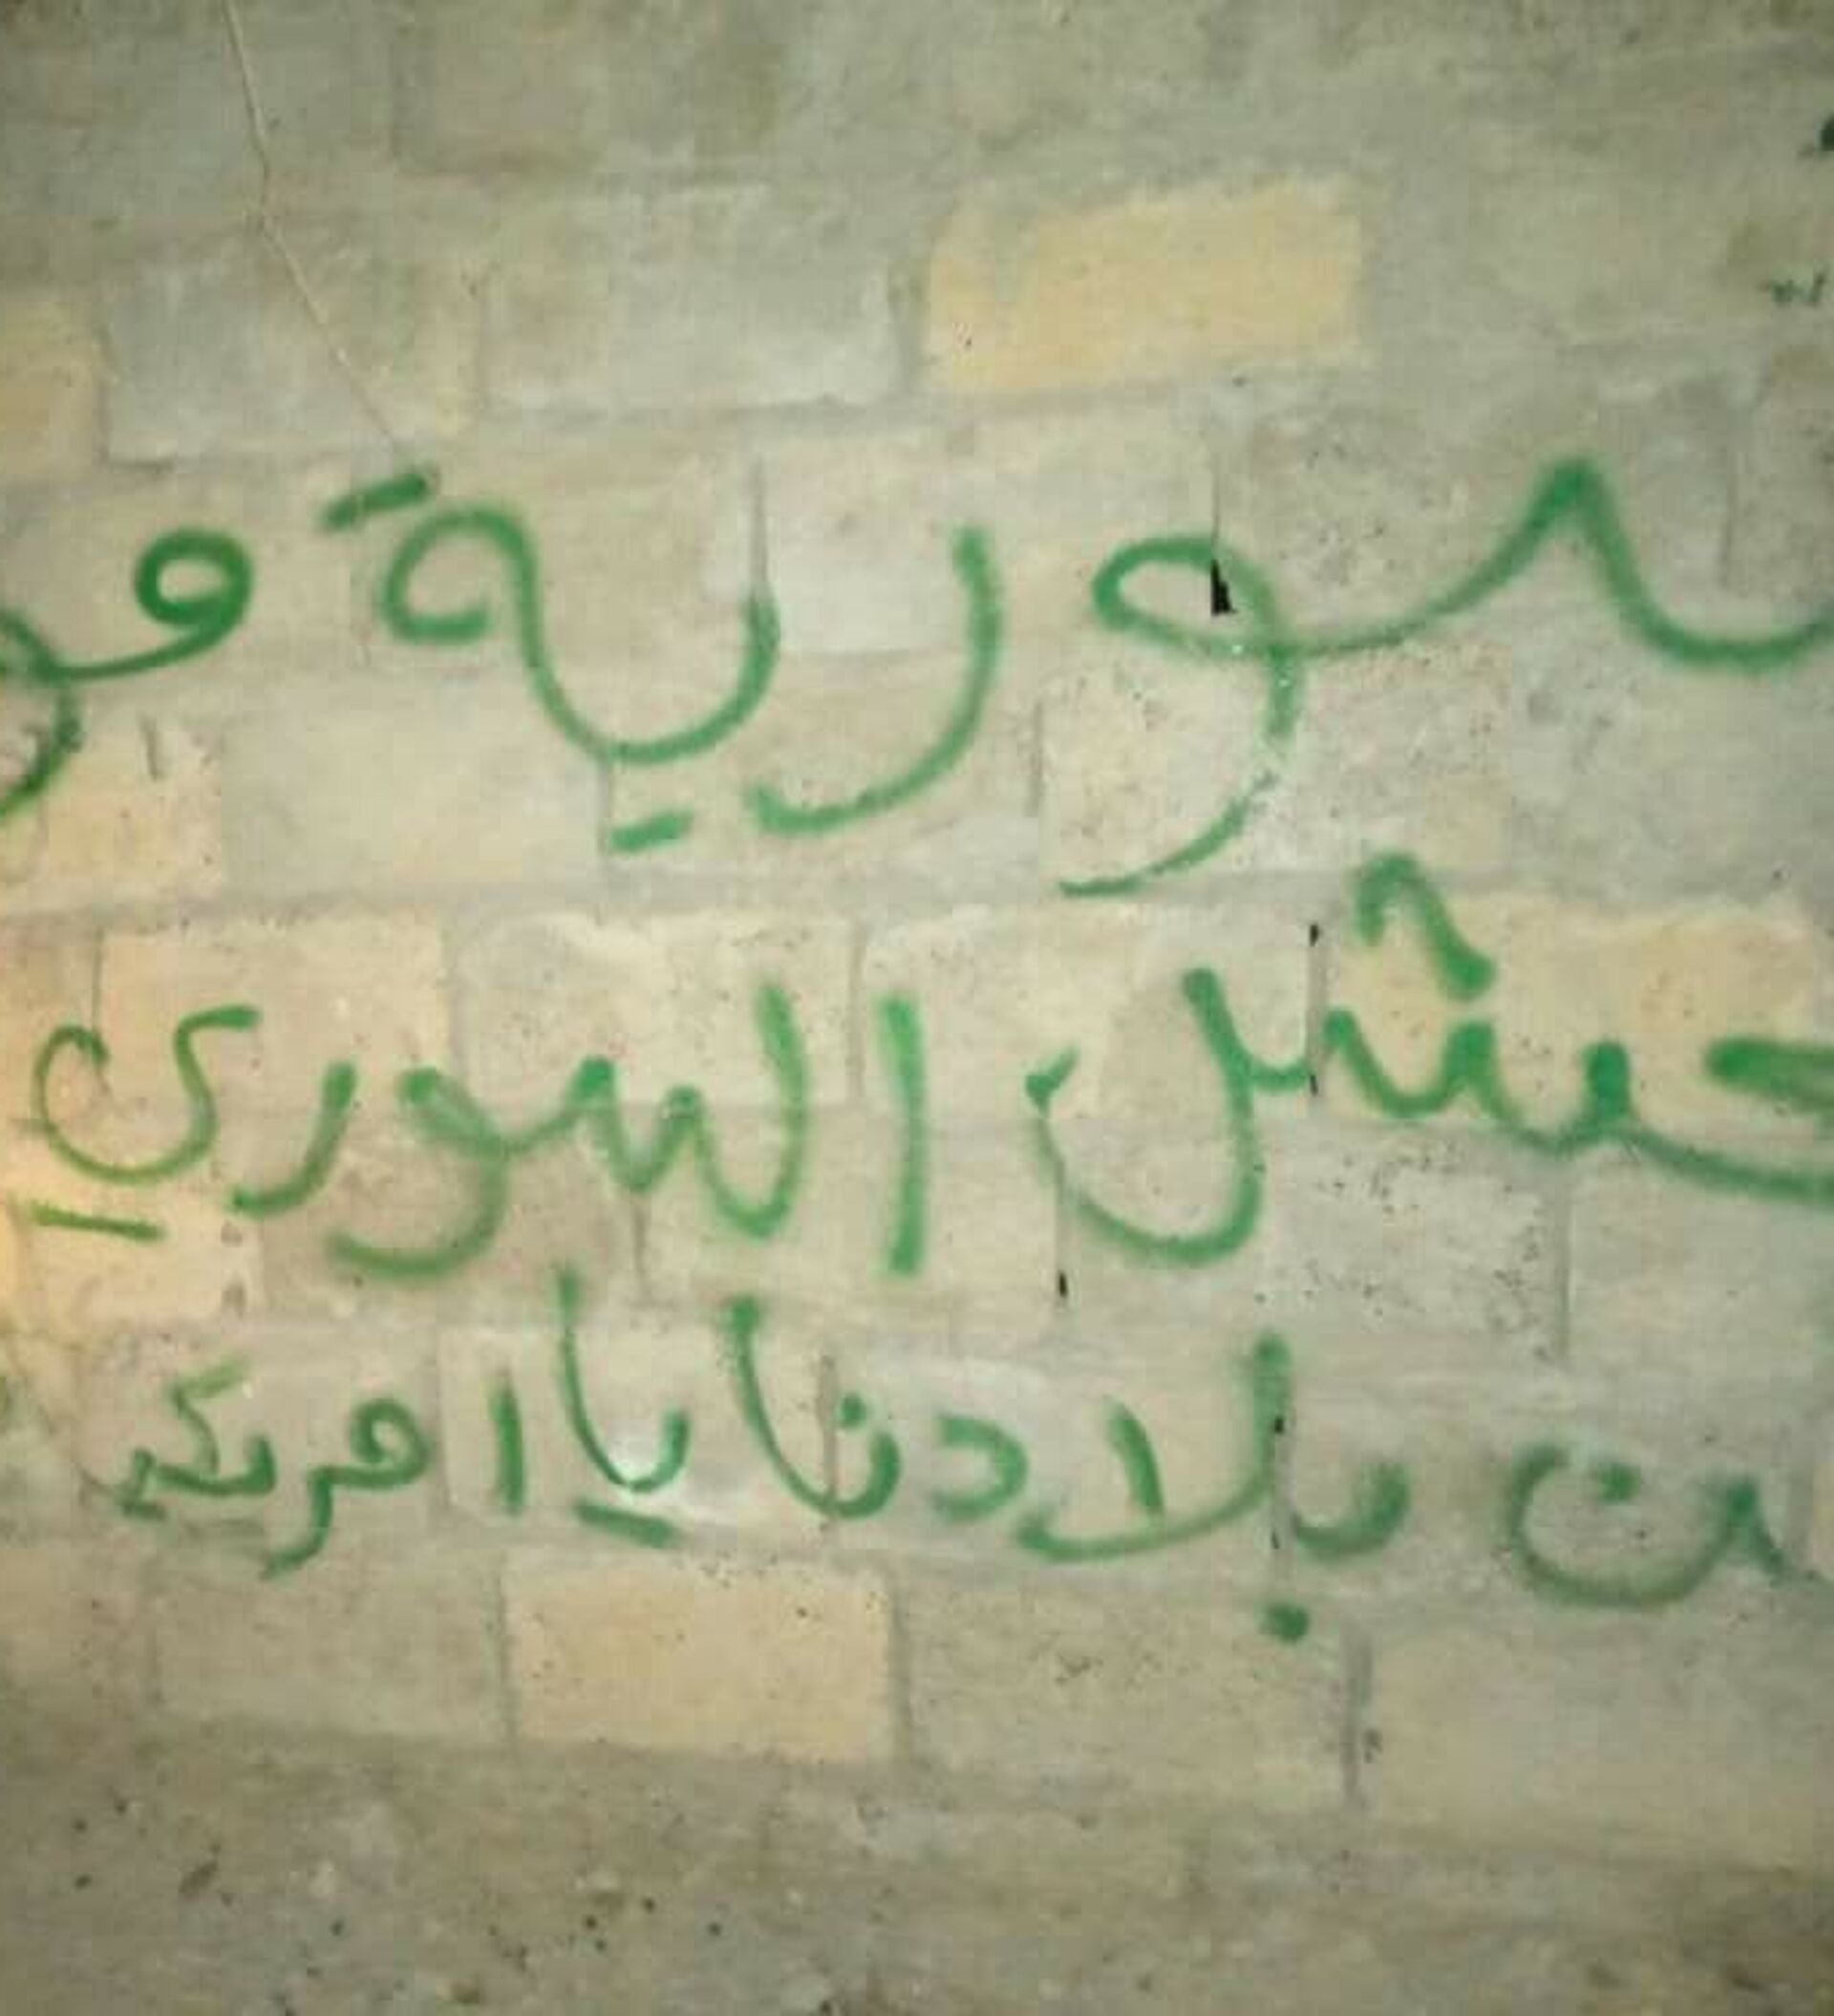 سورية
جيش السوري
بلادنا يا امريك